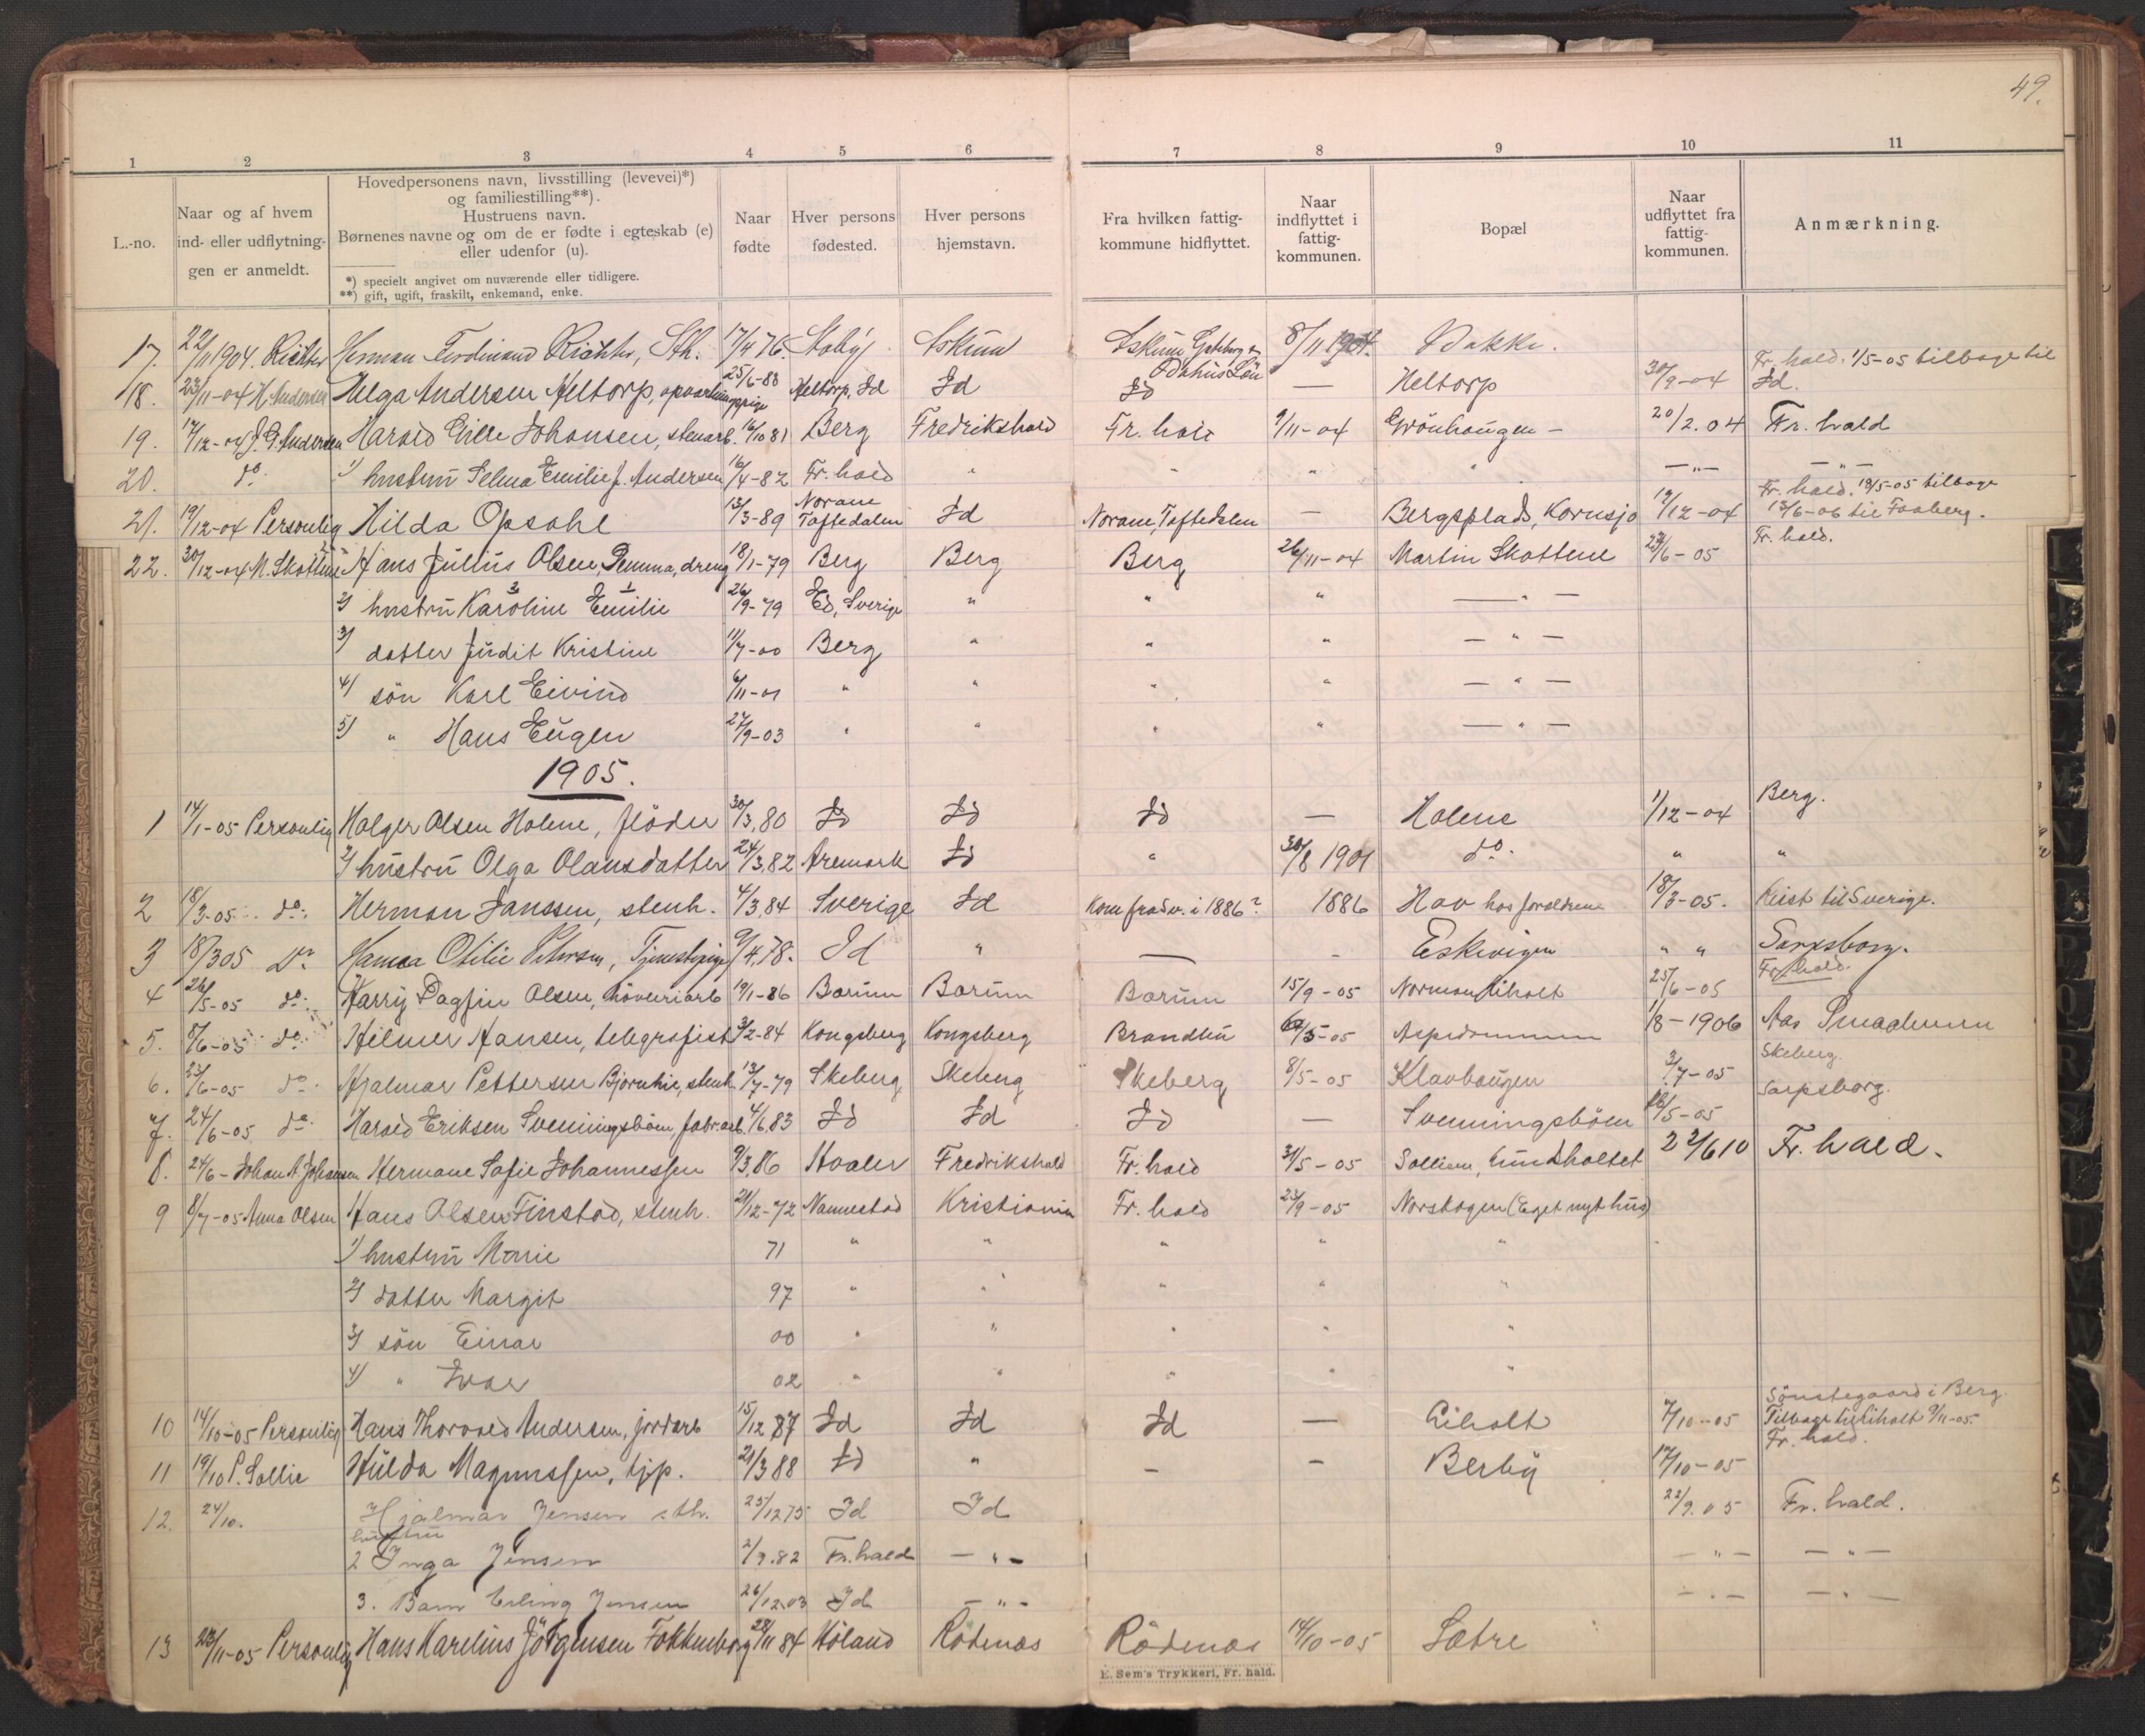 49.
1 2 3 4 5 6 7 8 9 10 11
L.-no.
Naar og af hvem
ind- eller udflytnin-
gen er anmeldt.
Hovedpersonens navn, livsstilling (levevei)*)
og familiestilling**).
Hustruens navn.
Børnenes navne og om de er fødte i egteskab (e)
eller udenfor (u).
*) specielt angivet om nuværende eller tidligere.
**) gift, ugift, fraskilt, enkemand, enke.
Naar
fødte
Hver persons
fødested.
Hver persons
hjemstavn.
Fra hvilken fattig-
kommune hidflyttet.
Naar
indflyttet i
fattig-
kommunen.
Bopæl
Naar
udflyttet fra
fattig-
kommunen.
Anmærkning.
17. 22/11 1904. Richter Herman Ferdinand Richter, Sth. 17/4 76 Askum Askum 8/11 1904. Bakke.
Fr. hald. 1/5-05 tilbage til
18. 23/11-04 H. Andersen Helga Andersen Heltorp, opvartningspige 25/6-88 Heltorp, Id Id Id — Heltorp 30/9-04 Id.
19. 17/12-04 J. G. Andersen Harald Gille Johansen, stenarb. 16/10 81 Berg Fredrikshald Fr. hald 9/11-04 Grönhaugen — 20/2.04 Fr. hald
20. do. 1) hustru Selma Emilie f. Andersen 16/4-82 Fr. hald " " " " —"— —"—
Fr. hald. 18/5-05 tilbage
21. 19/12-04 Personlig Hilda Opsahl 13/3-89 Norane Töftedalen Id Norane, Töftedalen — Bergsplads, Kornsjø 19/12-04 13/6-06 til Faaberg.
Fr. hald.
22. 30/12-04 M. Skottene 1) Hans Julius Olsen, Demma, dreng 18/1-79 Berg Berg Berg 26/11-04 Martin Skottene 23/6-05
2) hustru Karoline Emilie 26/9-79 Ed, Sverige " " " —"—
3) datter Judit Kristine 11/7-00 Berg " " " —"—
4) sön Karl Eivind 6/11-01 " " " " —"—
5) " Hans Eugen 27/9-03 " " " " —"—
1905.
Berg.
1 14/1-05 Personlig Holger Olsen Holene, flöder 30/3.80 Id Id Id — Holene 1/12-04
2) hustru Olga Olausdatter 24/3.82 Aremark Id " 30/8 1901 do. " "
2 18/3-05 do. Herman Janssen, stenh. 4/3.84 Sverige Id Kom fra Sv. i 1886? 1886 Hov hos forældrene 18/3-05. Reist til Sverige.
3 18/3 05 Do Hanna Otilie Petersen, Tjenestepige 9/4.78. Id " — - Eskevigen " " Sarpsborg.
Fr. hald.
4 26/5-05 do. Harry Dagfin Olsen, höveriarb 19/1-86 Barum Barum Barum 15/9-05 Norman Liholt 25/6-05
5. 8/6-05 do. Hilmer Hansen, telegrafist 3/2-84 Kongsberg Kongsberg Brandbu /5-05 Aspedammen 1/8-1906 Aas Smaalenene
Skeberg.
6. 23/6-05 do. Hjalmar Pettersen Bjornlie, stenh. 13/7-79 Skeberg Skeberg Skeberg 8/5-05 Klavhaugen 3/7-05
Sarpsborg.
7. 24/6-05 do. Harald Eriksen Svenningsböen, fabr.arb. 4/6.83 Id Id Id — Svenningsböen /5-05
8. 24/6- Johan A. Johansen Hermane Sofie Johannessen 9/3.86 Haaler Fredrikshald Fr. hald 31/5-05 Sollien, Lundsholtet 22/6 10 Fr. hald.
9 8/7-05 Anna Olsen Hans Olsen Finstad, stenh. 21/12-72 Nannestad Kristiania Fr. hald 23/9-05 Norskogen (Eget nyt hus)
1) hustru Marie 71 " " " " "
2) datter Margit 97 " " " " "
3) sön Einar 00 " " " " "
4) " Ivar 02 " " " " "
Sönstegaard i Berg
10 14/10-05 Personlig Hans Thorvald Andersen, jordarb 15/12 87 Id Id Id — Liholt 7/10-05 Tilbage til Liholt 9/11-05.
Fr. hald.
11 19/10 P. Sollie Hulda Magnussen, tjp. 21/3 88 Id " — — Berby 17/10-05
12. 24/10. Hjalmar Jensen sth. 25/12 75 Id Id 22/9.05 Fr. hald.
hustru
2 Inga Jensen 2/9.82 Fr. hald —"— —"— —"—
3. Barn Erling Jensen 26/12.03 Id —"— —"— —"—
13 23/11-05 Personlig Hans Karelius Jörgensen Fokkenborg 28/11 84 Höland Rödenæs Rödenæs 14/10-05 Sætre
E. Sem's Trykkeri, Fr. hald.